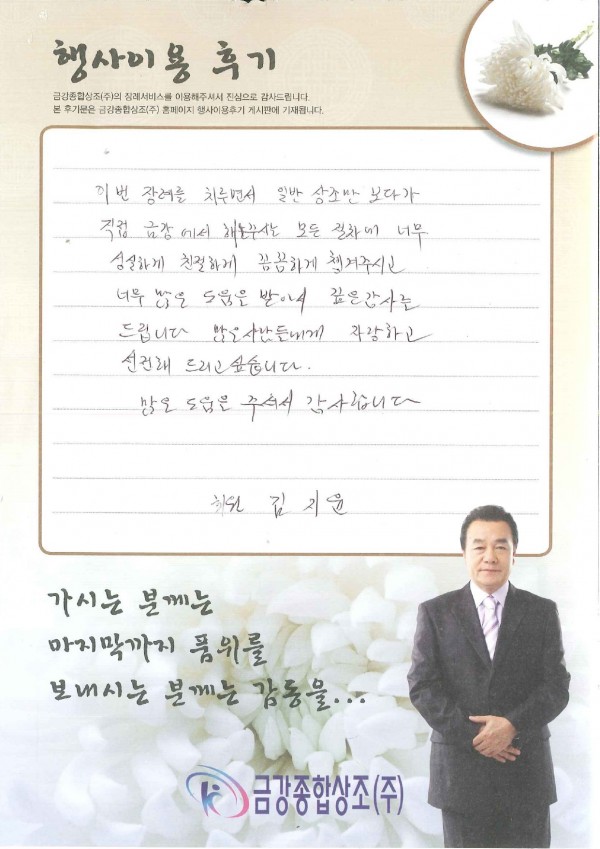 행사이용 후기
금강종합상조(주)의 장례서비스를 이용해주셔서 진심으로 감사드립니다.
본 후기문은 금강종합상조(주) 홈페이지 행사이용후기 게시판에 기재됩니다.
이번 장례를 치루면서 일반 상조만 보다가
직접 금강에서 해주시는 모든 절차에 너무
성실하게 친절하게 꼼꼼하게 챙겨주시고
너무 많은 도움을 받아서 깊은감사를
드립니다 많은사람들에게 자랑하고
선전해 드리고싶습니다.
많은 도움을 주셔서 감사합니다
회원 김지윤
가시는 분께는
마지막까지 품위를
보내시는 분께는 감동을...
금강종합상조(주)